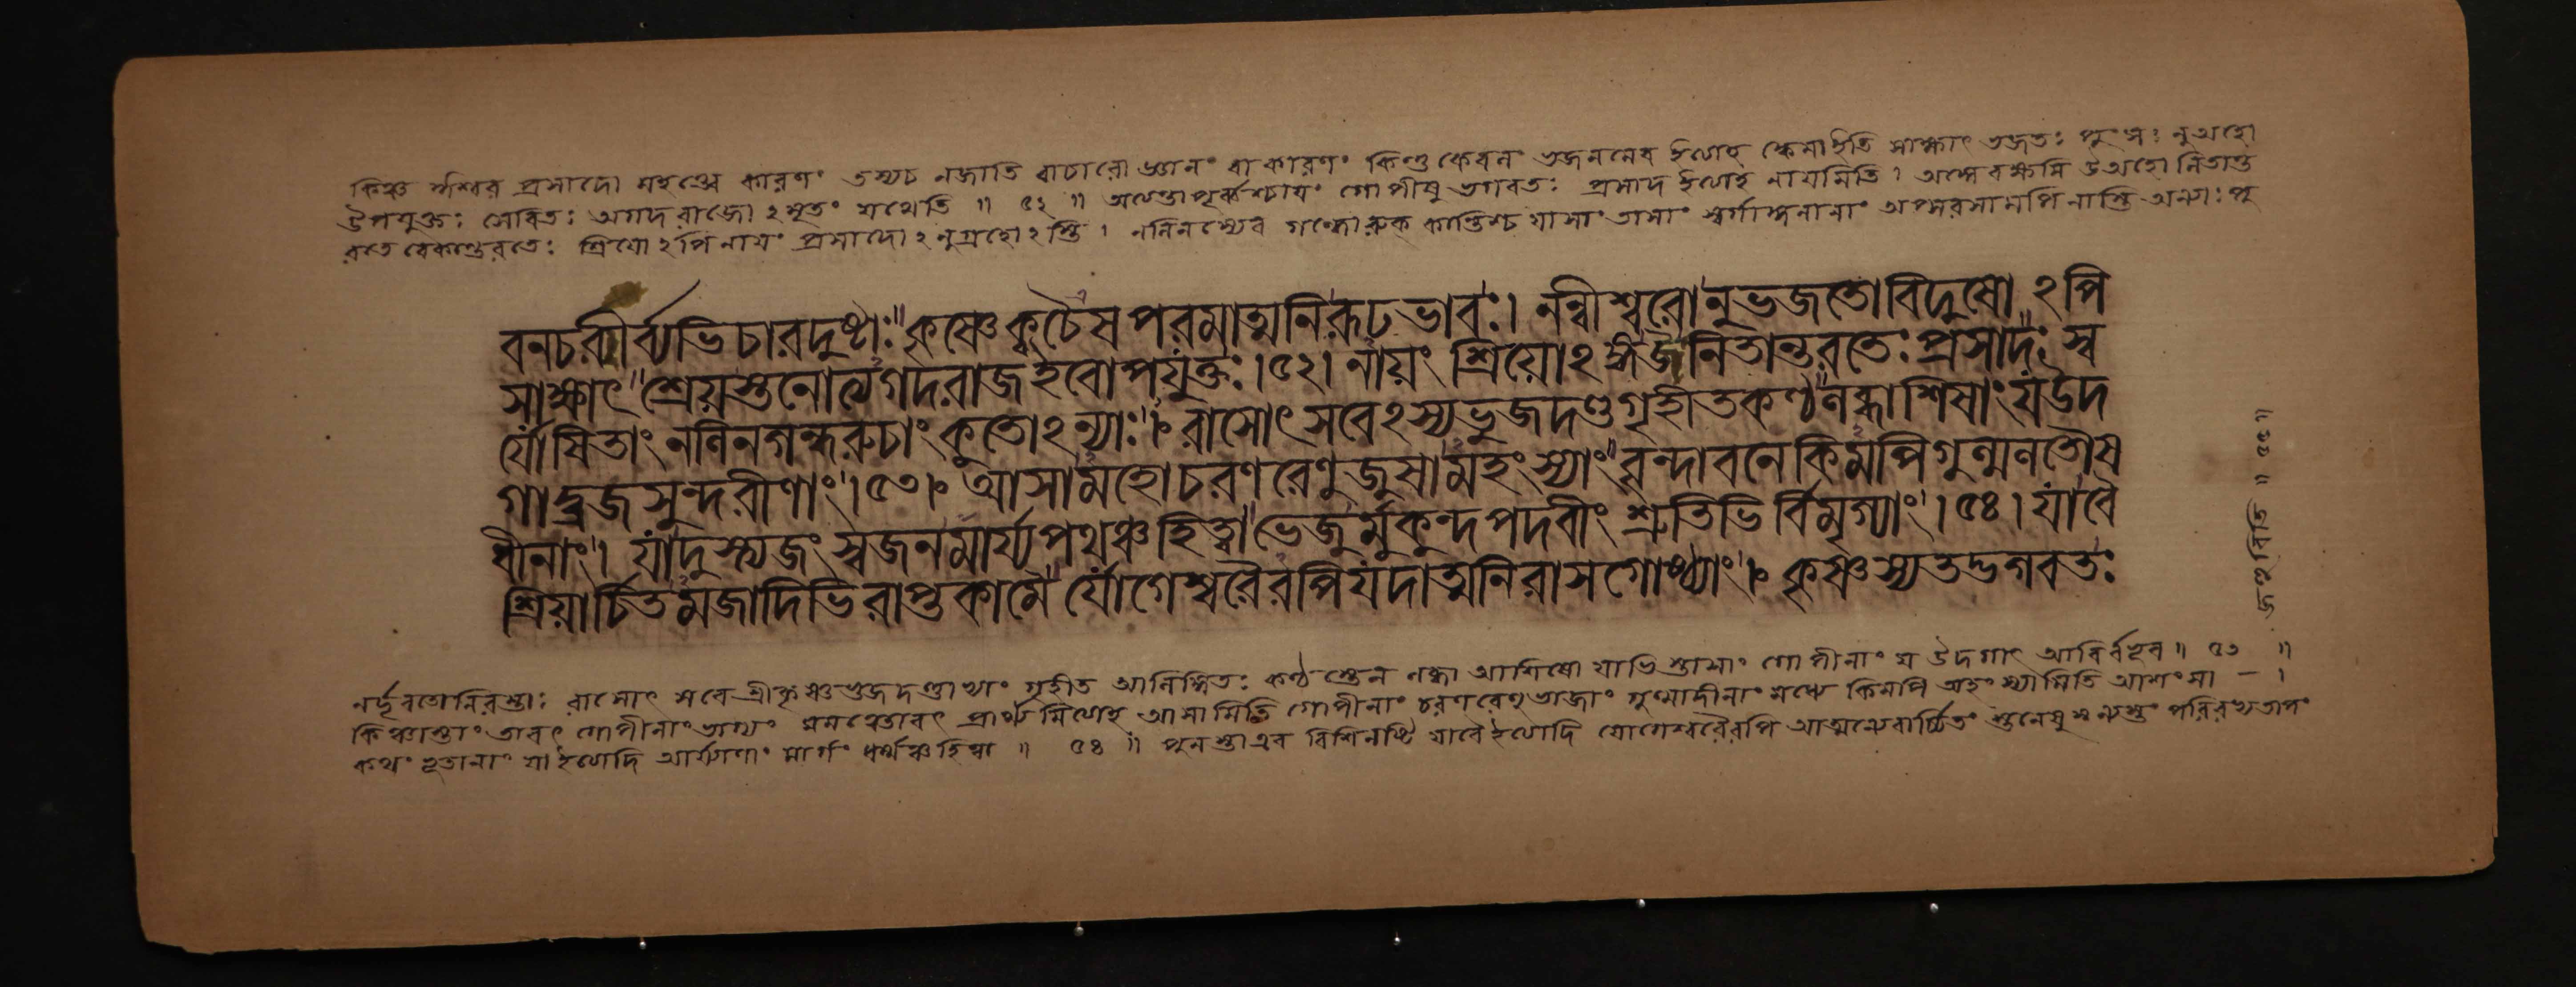 কিঞ্চ ঈশ্বর প্রসাদো মহত্ত্বে কারণং তস্যচ নজাতি র্নাচারো জ্ঞানং বা কারণং কিন্তু কেবল ভজনমেব ইত্যাহ ক্বেমাইতি সাক্ষাৎ ভজতঃ পুংসঃ নুঅহো
উপযুক্তঃ সেবিতঃ অগদরাজো ঽমৃতং যথেতি ॥ ৫২ ॥ অত্যন্তাপূর্ব্বশ্চায়ং গোপীষু ভগবতঃ প্রসাদ ইত্যাহ নায়মিতি। অঙ্গেবক্ষসি উঅহো নিতান্ত
রতে রেকান্তরতেঃ শ্রিয়োঽপি নায়ং প্রসাদোঽনুগ্রহোঽস্তি। নলিনস্যেব গন্ধোরুক্ কান্তিশ্চ যাসাং তাসাং স্বর্গাঙ্গনানাং অপ্সরসামপি নাস্তি অন্যাঃ পু
বনচরীর্ব্যভিচারদুষ্টাঃ কৃষ্ণেক্বচৈষ পরমাত্মনিরূঢভাবঃ। নন্বীশ্বরোনুভজতোবিদুষোঽপি
সাক্ষাৎ শ্রেয়স্তনোত্যগদরাজইবোপযুক্তঃ।৫২। নায়ং শ্রিয়োঽঙ্গউনিতান্তরতেঃ প্রসাদঃ স্ব
র্যোষিতাং নলিনগন্ধরুচাং কুতোঽন্যাঃ। রাসোৎসবেঽস্যভুজদণ্ডগৃহীতকণ্ঠলব্ধাশিষাং যউদ
গাদ্ব্রজসুন্দরীণাং।৫৩। আসামহোচরণরেণুজুষামহংস্যাং বৃন্দাবনেকিমপিগুল্মলতৌষ
ধীনাং। যাদুস্ত্যজং স্বজনমার্য্যপথঞ্চহিত্বা ভেজুর্মুকুন্দপদবীং শ্রুতিভির্বিমৃগ্যাং।৫৪। যাবৈ
শ্রিয়ার্চিতমজাদিভিরাপ্তকামৈ র্যোগেশ্বরৈরপিযদাত্মনিরাসগোষ্ঠ্যাং। কৃষ্ণস্যতদ্ভগবতঃ
নর্দূরতোনিরস্তাঃ রাসোৎসবেশ্রীকৃষ্ণভুজদণ্ডাভ্যাং গৃহীত আলিঙ্গিতঃ কণ্ঠস্তেন লব্ধা আশিষো যাভিস্তাসাং গোপীনাং য উদগাৎ আবির্বভূব॥ ৫৩ ॥
কিঞ্চাস্তাং তাবৎ গোপীনাং ভাগ্যং মমত্বেতাবৎ প্রার্থ্যমিত্যাহ আসামিতি গোপীনাং চরণরেণুভাজাং গুল্মাদীনাং মধ্যে কিমপি অহং স্যামিতি আশংসা — ।
কথং ভূতানাং যাইত্যাদি আর্য্যাণাং মার্গং ধর্ম্মঞ্চহিত্বা ॥ ৫৪ ॥ পুনস্তাএব বিশিনষ্টি যাবৈইত্যাদি যোগেশ্বরৈরপি আত্মন্যেবার্চ্চিতং স্তনেষু ন্যস্তং পরিরভ্যতাপং
জহুরিতি ॥ ৫৫ ॥